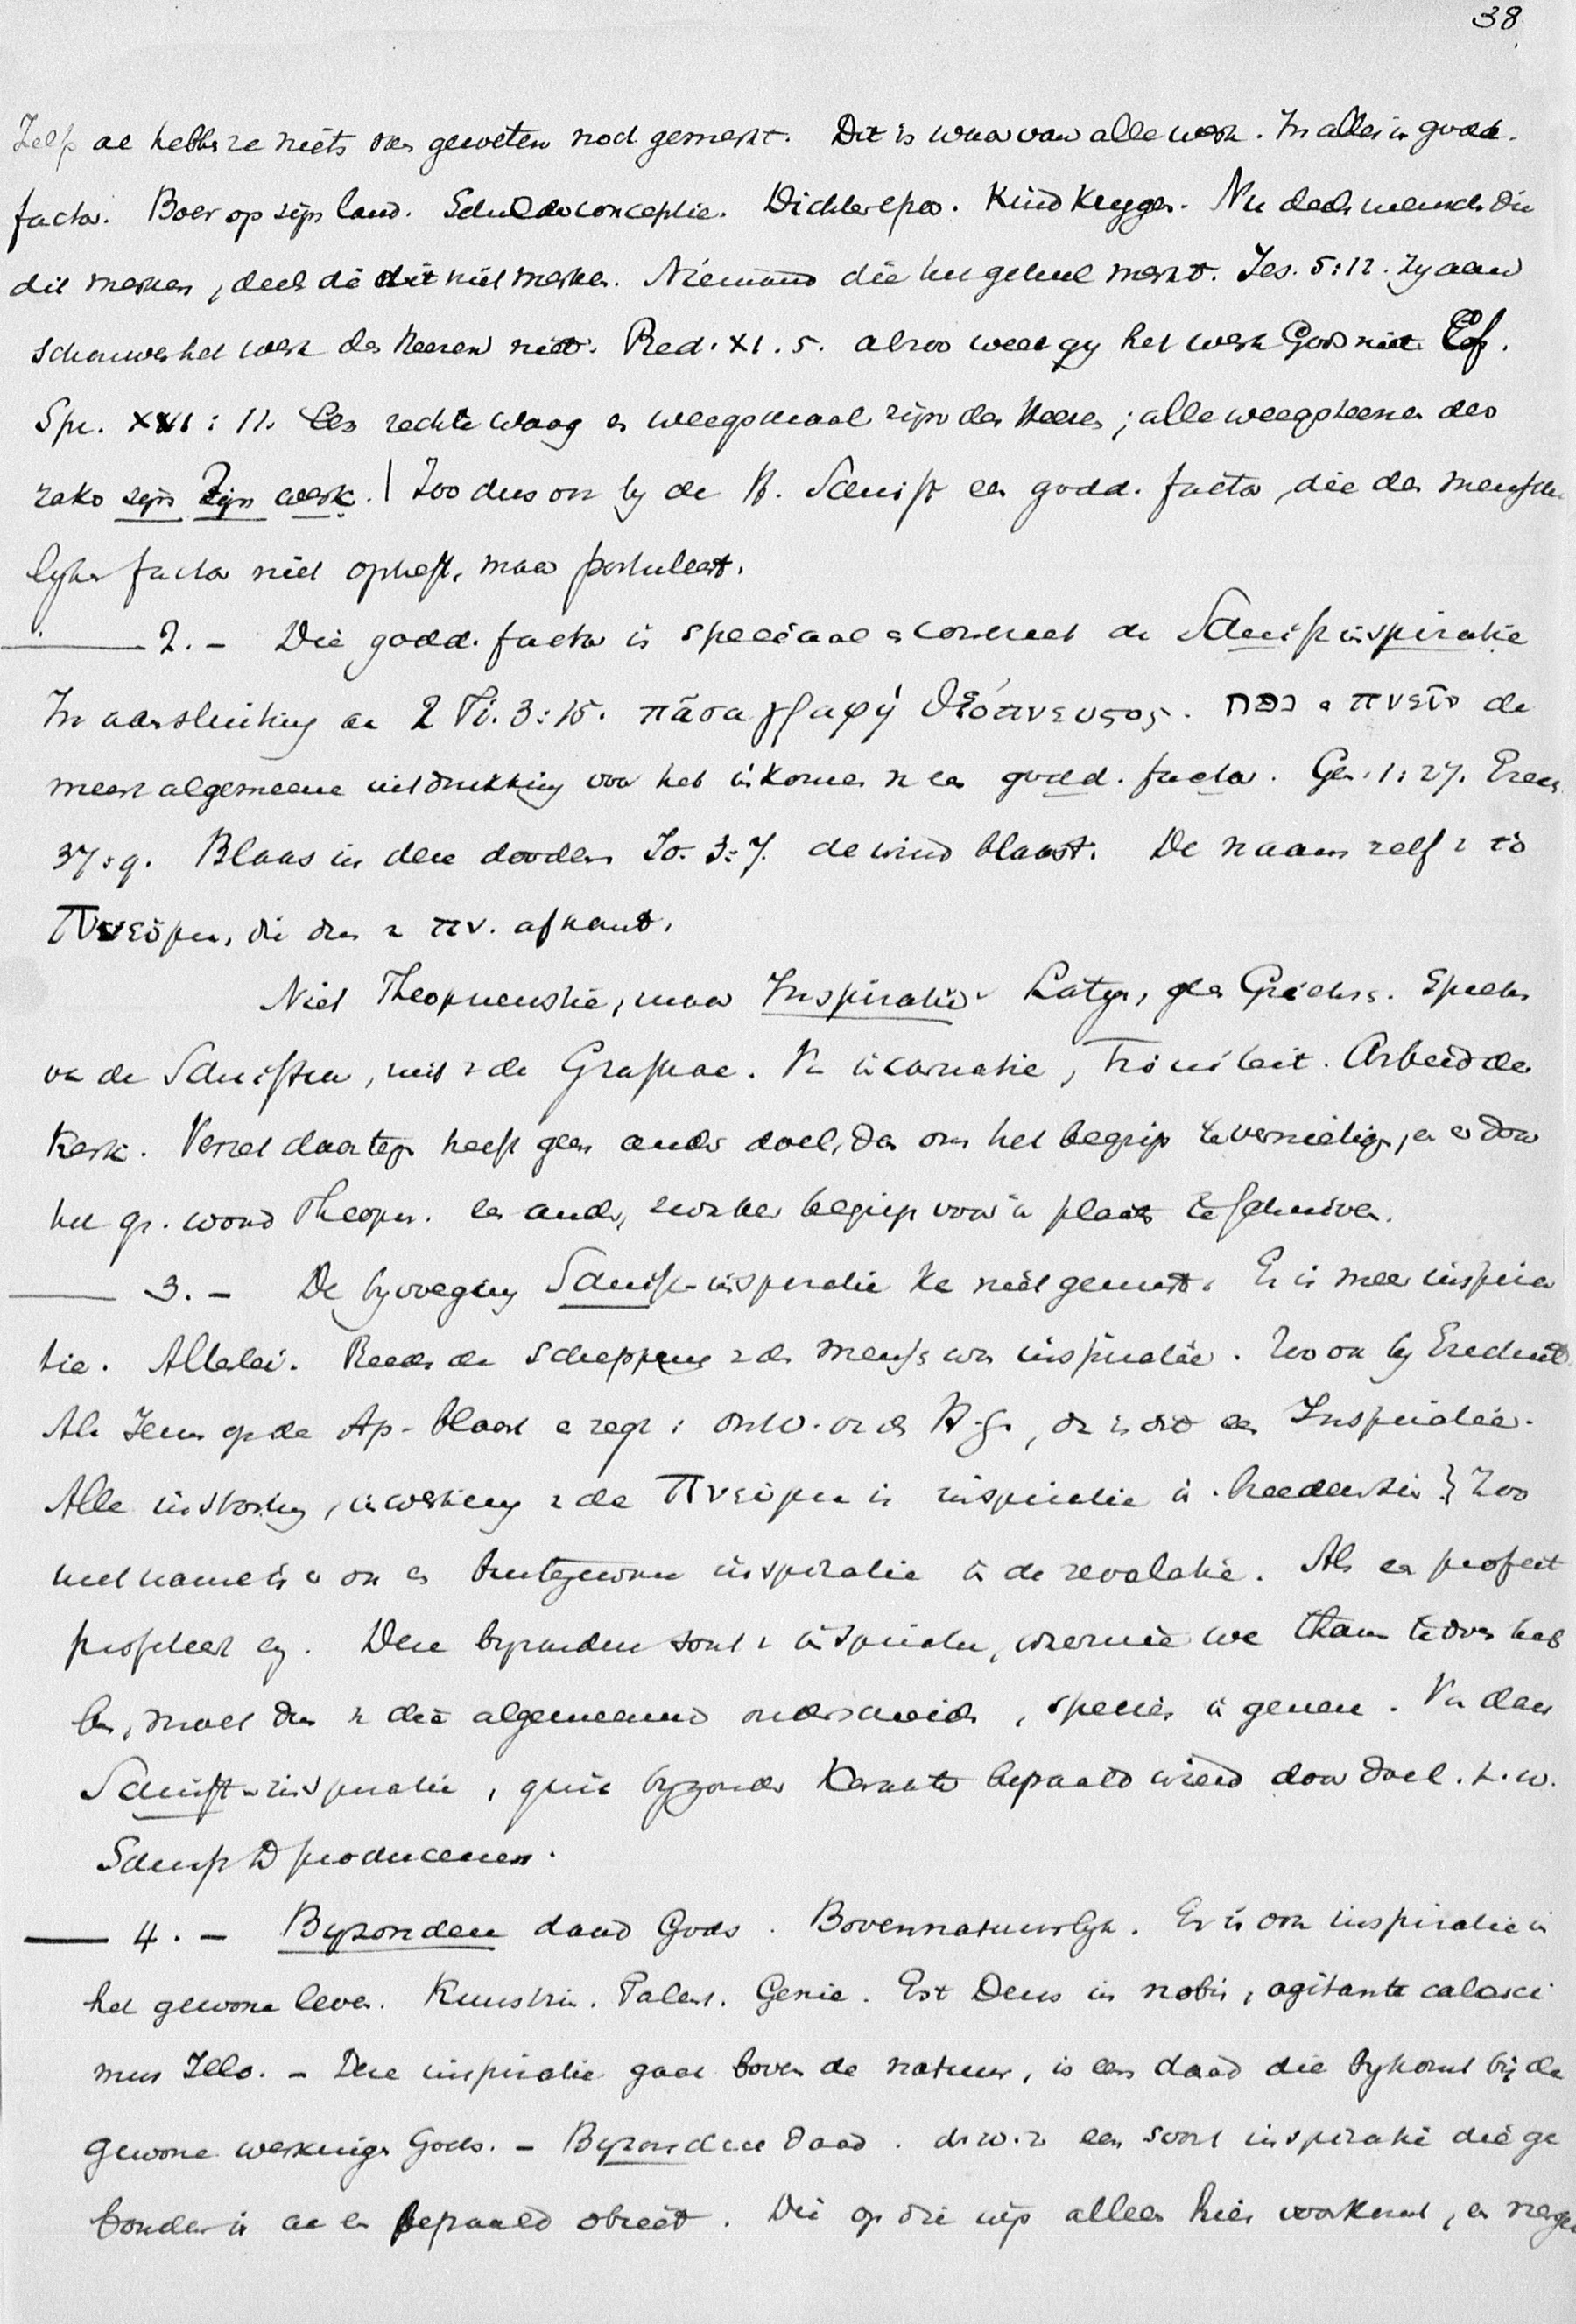 38
Zelf al hebbe ze niets van geweten noch gemerkt. Dit is waar van alle werk. In alles is godd.
factor. Boer op zijn land. Schilderconceptie. Dichter epos. Kind krygen. Nu deels mensch die
dit merken, deels die dit niet merken. Niemand die het geheel merkt. Jes. 5:12. Zy aan
schouwen het werk des Heeren niet. Pred. XI. 5. alzoo weet gy het werk Gods niet. Cf.
Spr. XVI : 11. Een rechte waag en weegschaal zijn des Heeren ; alle weegsteenen des
zaks zijn Zijn werk. | Zoo dus ook by de H. Schrift een godd. factor, die den mensche
lyken factor niet opheft, maar postuleert.
2. - Die godd. factor is speciaal en concreet de Schriftinspiratie
In aansluiting aan 2 Ti. 3:15. πᾶσα γραφή θεόπνευστος. נפח en πνεῖν de
meest algemeene uitdrukking voor het inkomen v een godd. factor. Gen. 1:27. Ezech.
37:9. Blaas in deze dooden Jo. 3:7. de wind blaast. De naam zelf v τὸ
Πνεῦμα, die dan v πν. afkomt.
Niet Theopneustie, maar Inspiratio Latijn, geen Grieksch. Spreken
van de Schriften, niet v de Graphae. Van incarnatie, Triniteit. Arbeid der
Kerk. Verzet daartegen heeft geen ander doel, dan om het begrip te vernietigen, en er door
het gr. woord Theopn. een ander, zwakker begrip voor in plaats te schuiven.
3. - De byvoeging Schrift-inspiratie kan niet gemist. Er is meer inspira
tie. Allerlei. Reeds de schepping v den mensch was inspiratie. Zoo ook by Ezechiël
Als Jezus op de Ap. blaast en zegt : ontv. den H.G., dan is dit een Inspiratie.
Alle instorting, inwerking v de Πνεῦμα is inspiratie in breederen zin } Zoo
met name is er ook een buitengewone inspiratie in de revelatie. Als een profeet
profeteert enz. Deze byzondere soort v inspiratie, waarmee we thans te doen heb
ben, moet dus v die algemeene onderscheiden, species in genere. Van daar
Schrift-inspiratie, quia byzonder karakter bepaald wierd door doel. t.w.
Schrift te produceeren.
4. - Byzondere daad Gods. Bovennatuurlyk. Er is ook inspiratie in
het gewone leven. Kunstzin. Talent. Genie. Est Deus in nobis, agitante calesci
mus Illo. - Deze inspiratie gaat boven de natuur, is een daad die bykomt bij de
gewone werkingen Gods. - Byzondere daad. d.w.z. een soort inspiratie die ge
bonden is aan een bepaald object. Die op die wijs alleen hier voorkomt, en nergens